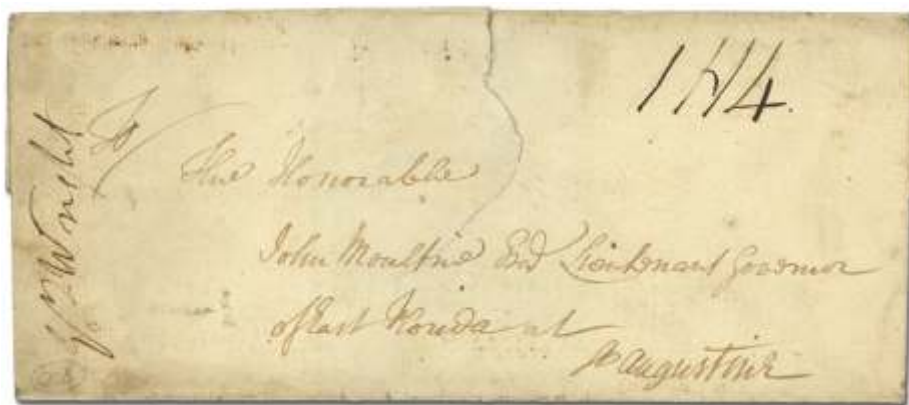 To
The Honorable
John Moultrie Esqr Lieutenant Governor
of East Florida at
St Augustine
Wright